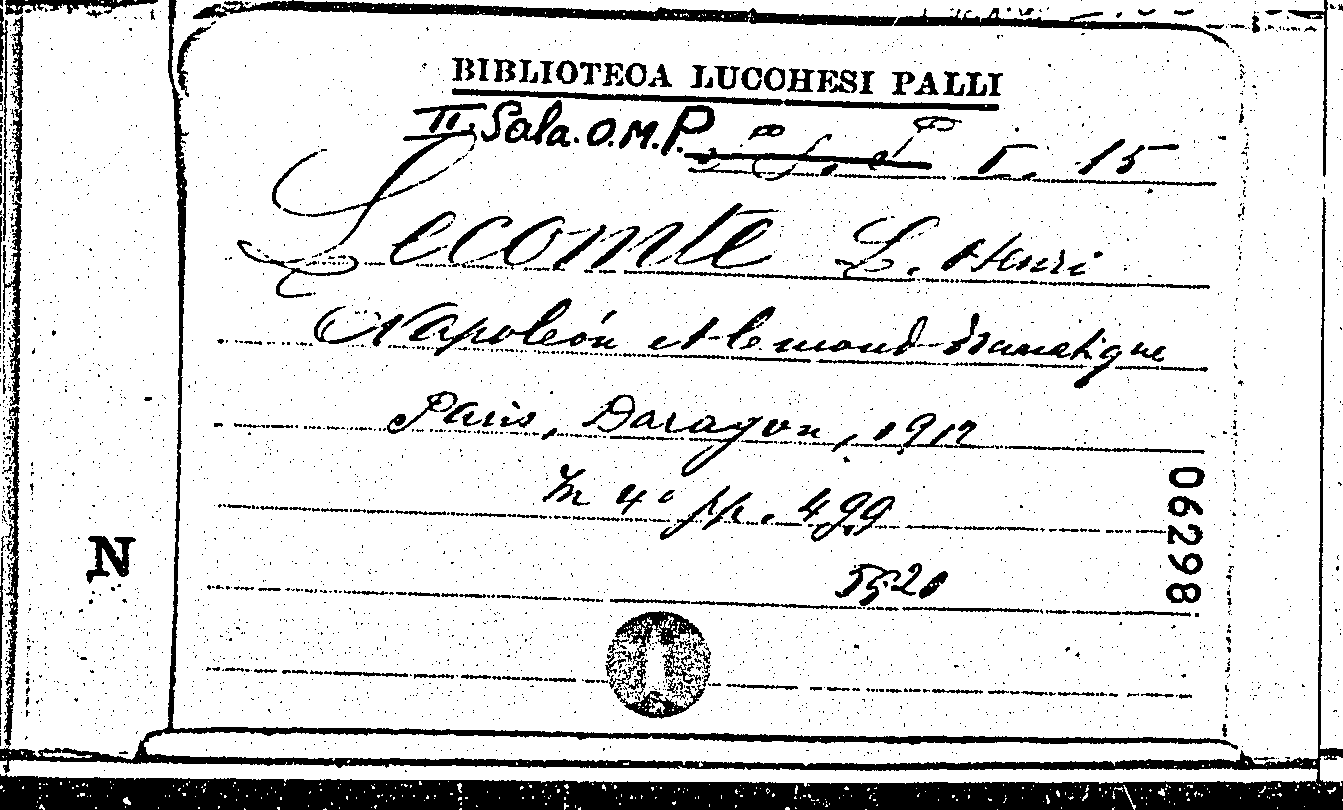 BIBLIOTECA LUCCHESI PALLI
II. Sala. O.M.P. I. 15
Lecomte L. Henri
Napoleón et le mond dramatique
Paris, Daragon, 1912
In 4º pp. 499
06298
N